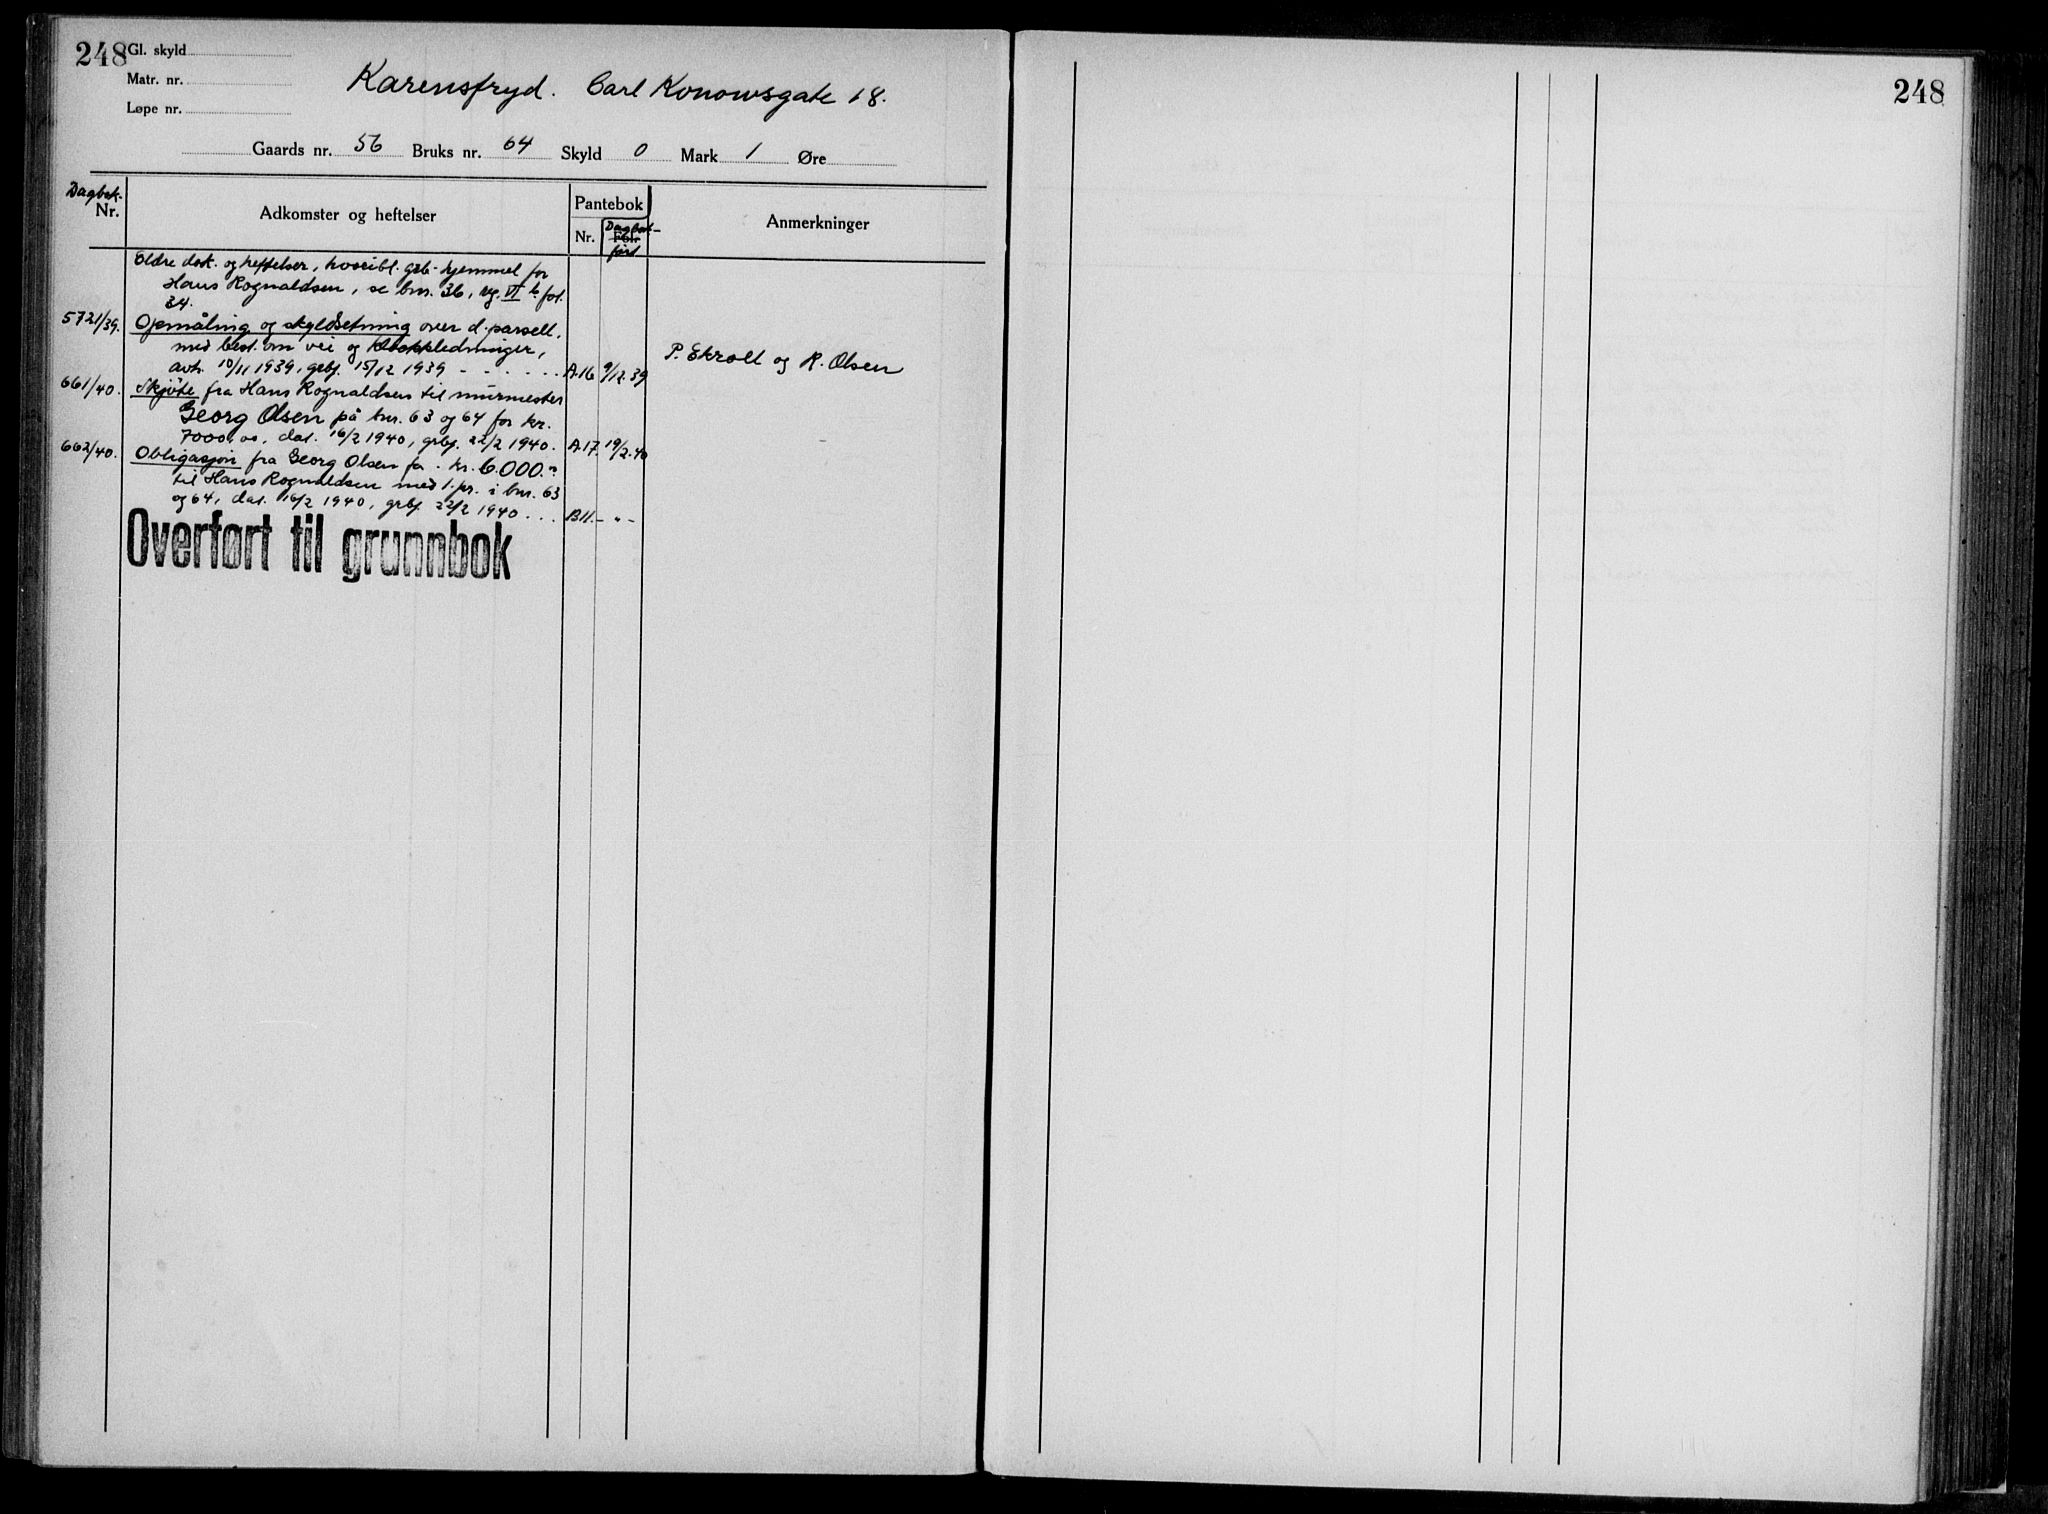 248 Gl. skyld 248
Matr. nr.
Løpe nr.
Karensfryd. Carl Konowsgate 18.
Gaards nr. 56 Bruks nr. 64 Skyld 0 Mark 1 Øre
Dagbok.
Nr. Adkomster og heftelser Pantebok Anmerkninger
Nr. Fol. Dagbok-
ført
Eldre dok. og heftelser, hvoribl. grb. hjemmel for
Hans Rognaldsen, se bnr. 36, rg. VI b fol.
34.
5721/39. Opmåling og skyldsetning over d. parsell,
med best. om vei og kloakkledninger,
avh. 10/11 1939, grbf. 15/12 1939 A.16 9/12.39 P. Ekroll og R. Olsen
661/40. Skjöte fra Hans Rognaldsen til murmester
Georg Olsen på bnr. 63 og 64 for kr.
7000,00, dat. 16/2 1940, grbf. 22/2 1940. A.17. 19/2.40
662/40. Obligasjon fra Georg Olsen for kr. 6.000.-
til Hans Rognaldsen med 1. pr. i bnr. 63
og 64, dat. 16/2 1940, grbf. 22/2 1940 ... B11. - " -
Overført til grunnbok